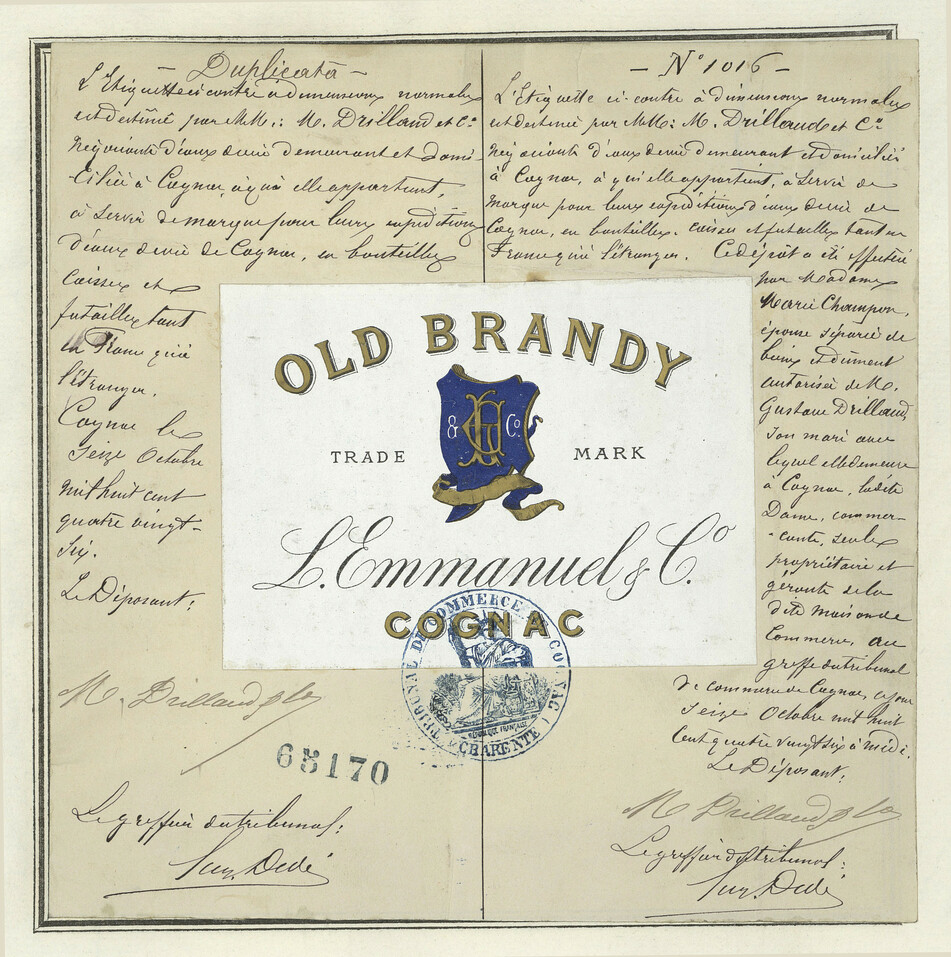 – Duplicata –
L'Etiquette ci contre à dimensions normales
est destinée par MM.: M. Drilland et Cie
Négociants d'eaux de vie demeurant et domi-
ciliés à Cognac à qui elle appartient,
à servir de marque pour leurs expéditions
d'eaux de vie de Cognac, en bouteilles
caisses et
futailles tant
en France qu'à
l'étranger.
Cognac le
seize Octobre
mil huit cent
quatre vingt-
six.
Le Déposant:
M. Drilland & Co
65170
Le greffier du tribunal:
– No 1016 –
L'Etiquette ci-contre à dimensions normales
est destinée par MM: M. Drilland et Cie
Négociants d'eaux de vie demeurant et domiciliés
à Cognac, à qui elle appartient, à servir de
marque pour leurs expéditions d'eaux de vie de
Cognac, en bouteilles, caisses et futailles tant en
France qu'à l'étranger. Ce dépôt a été effectué
par Madame
Marie Champon,
épouse séparée de
biens et dûment
autorisée de M.
Gustave Drilland,
son mari avec
lequel elle demeure
à Cognac, ladite
Dame, commer-
-çante, seule
propriétaire et
gérante de la
dite maison de
Commerce, au
greffe du tribunal
de commerce de Cognac, ce jour
seize Octobre mil huit
cent quatre vingt six à midi.
Le Déposant:
M Drilland & Co
Le greffier du tribunal:
OLD BRANDY
& Co
TRADE MARK
L. Emmanuel & Co.
COGNAC
TRIBUNAL DE COMMERCE DE COGNAC
(CHARENTE)